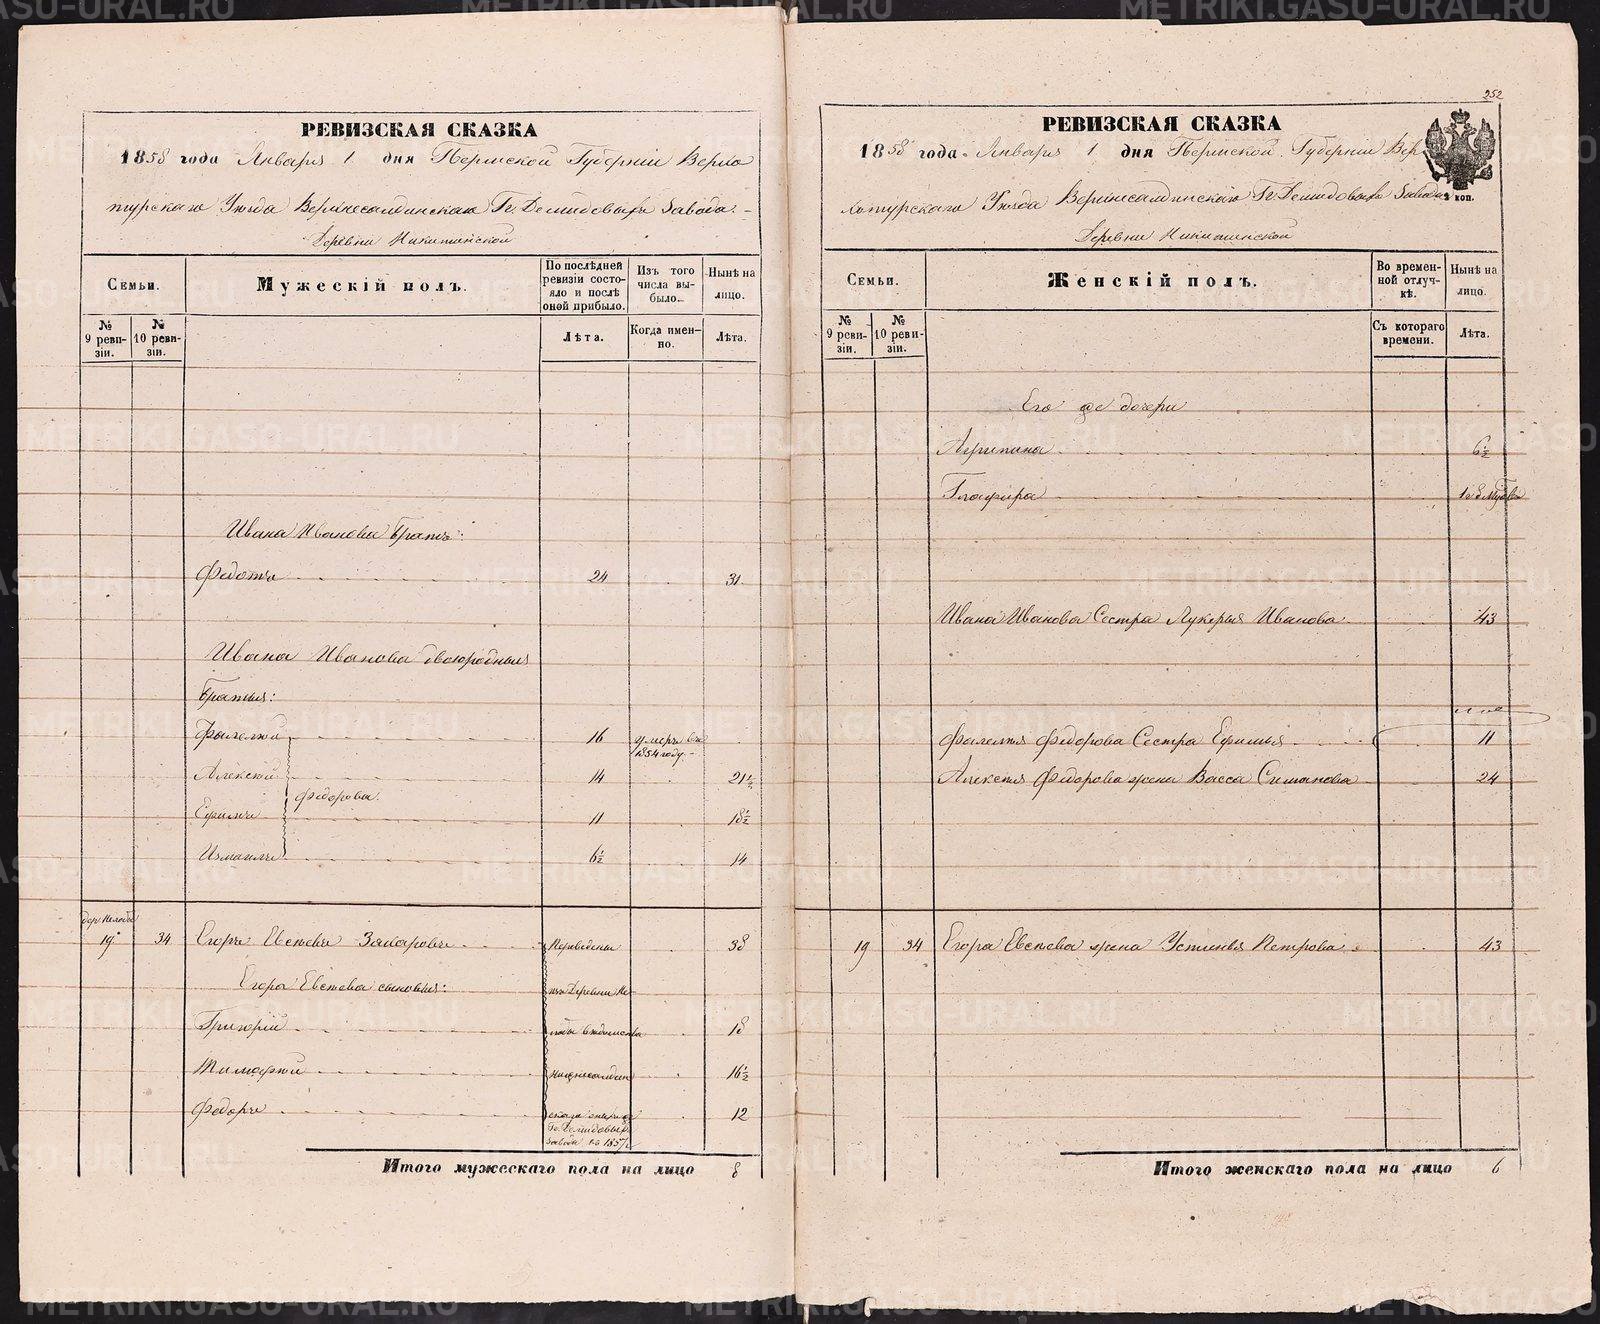 РЕВИЗСКАЯ СКАЗКА
1858 года Января 1 дня Пермской Губерніи Верхо
турскаго Уѣзда Верхнесалдинскаго Гг. Демидовыхъ Завода.
Деревни Никитинской
Семьи.
Мужескій полъ.
По послѣдней ревизіи состояло и послѣ оной прибыло.
Изъ того числа выбыло.
Нынѣ на лицо.
№ 9 ревизіи.
№ 10 ревизіи.
Лѣта.
Когда именно.
Лѣта.
Ивана Иванова Братъ:
Федотъ 24 31
Ивана Иванова двоюродныя
Братья:
Филетъй 16 умеръ въ 1854 году
Алексѣй 14 21½
Федоровы
Ефимъ 11 18½
Измаилъ 6½ 14
19 34 Егоръ Евсѣевъ Захаровъ Переведены 38
Егора Евсѣева сыновья: изъ Деревни Не
Григорій лобы вѣдомства 18
Тимофей Нижнесалдин 16½
Федоръ скаго 12
Гг. Демидовыхъ
завода въ 1857 г.
Итого мужескаго пола на лицо 8
252
РЕВИЗСКАЯ СКАЗКА
1858 года Января 1 дня Пермской Губерніи Вер
хотурскаго Уѣзда Верхнесалдинскаго Гг. Демидовыхъ Завода
2 коп.
Деревни Никитинской
Семьи.
Женскій полъ.
Во временной отлучкѣ.
Нынѣ на лицо.
№ 9 ревизіи.
№ 10 ревизіи.
Съ котораго времени.
Лѣта.
Его же дочери
Агрипина 6½
Глафира
Ивана Иванова Сестра Лукерья Иванова 43
Филетѣя Федорова Сестра Ефимья 11
Алексѣя Федорова жена Васса Симанова 24
19 34 Егора Евсѣева жена Устинья Петрова 43
Итого женскаго пола на лицо 6
METRIKI.GASO-URAL.RU